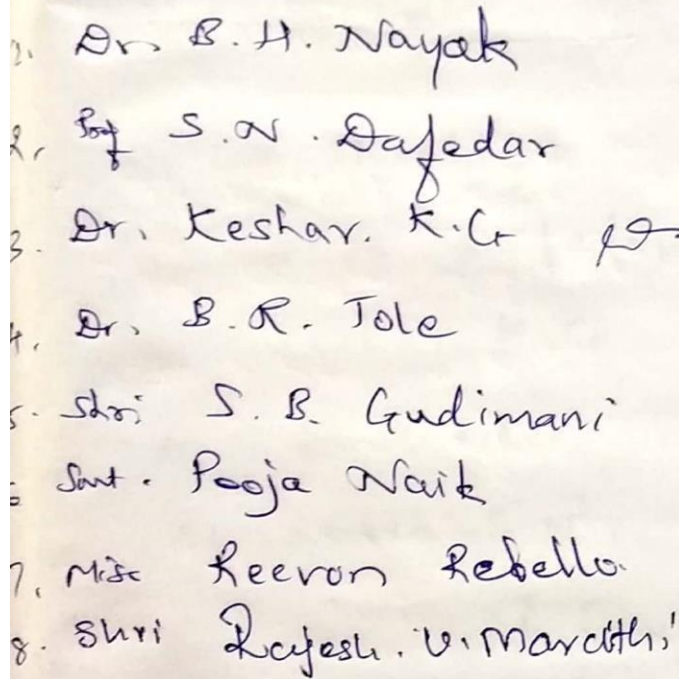 1. Dr. B. H. Nayak
2, Prof S. N. Dafedar
3. Dr. Keshav. K. G
4, Dr. B. R. Tole
5. Shri S. B. Gudimani
6 Smt. Pooja Naik
7, Miss Reevon Rebello.
8. Shri Rajesh. V. Marathi